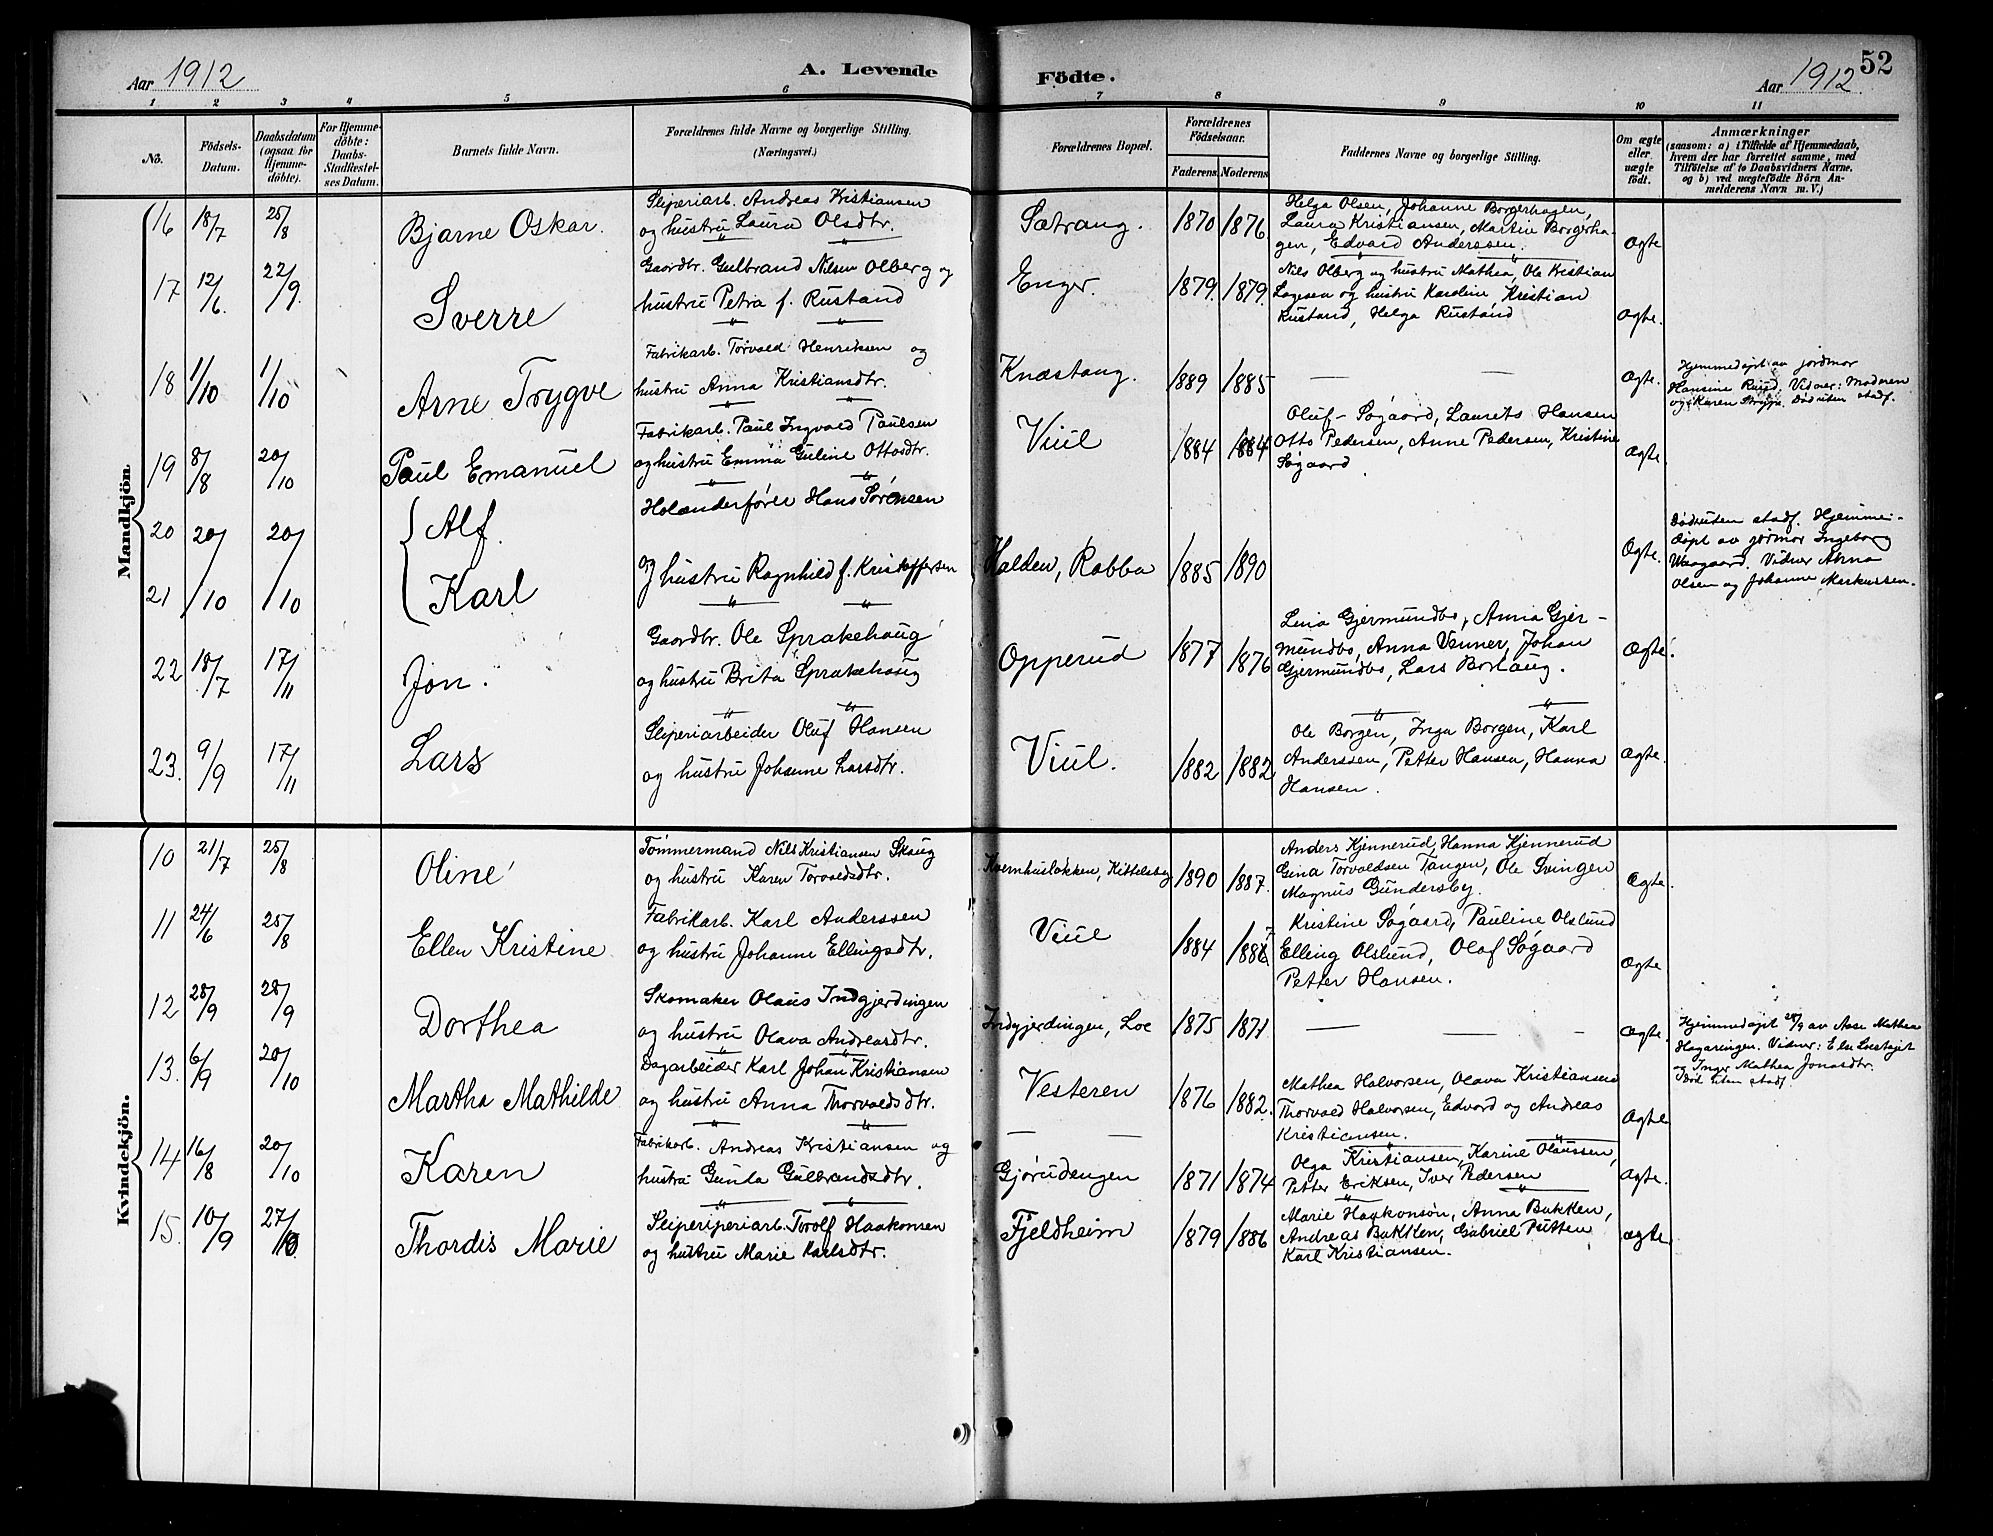 Aar 1912
A. Levende
Födte.
Aar 1912.
52
1 2 3 4 5 6 7 8 9 10 11
No.
Födsels-
Datum.
Daabsdatum
(ogsaa for
Hjemme-
döbte).
For Hjemme-
döbte:
Daabs-
Stadfæstel-
ses Datum.
Barnets fulde Navn.
Forældrenes fulde Navne og borgerlige Stilling.
(Næringsvei.)
Forældrenes Bopæl.
Forældrenes
Födselsaar.
Faderens. Moderens.
Faddernes Navne og borgerlige Stilling.
Om ægte
eller
uægte
födt.
Anmærkninger
(saasom: a) i Tilfælde af Hjemmedaab,
hvem der har forrettet samme, med
Tilföielse af to Daabsvidners Navne,
og b) ved uægtefödte Börn An-
melderens Navn m. V.)
Mandkjön.
16 18/7 25/8 Bjarne Oskar.
Sliperiarb. Andreas Kristiansen
og hustru Laura Olsdtr.
Sætrang. 1870 1876
Helga Olsen, Johanne Borgerhagen,
Laura Kristiansen, Martin Borgerha-
gen, Edvard Anderssen.
ægte
17 12/6. 22/9. Sverre
Gaardbr. Gulbrand Nilsen Olberg og
hustru Petra f. Rustand
Enger. 1879. 1879.
Nils Olberg og hustru Mathea, Ole Kristian
Lagesen og hustru Karoline, Kristian
Rustand, Helga Rustand
ægte.
18 1/10 1/10 Arne Trygve
Fabrikarb. Torvald Henriksen og
hustru Anna Kristiansdtr.
Knæstang. 1889 1885
— —
ægte.
Hjemmedøpt av jordmor
Hansine Ruud. Vidner: Moderen
og Karen Brygge. Død uten stadf.
19 8/8 20/10 Paul Emanuel
Fabrikarb. Paul Ingvald Paulsen
og hustru Emma Guline Ottosdtr.
Viul 1884 1884
Oluf Søgaard, Laurets Hansen
Otto Pedersen, Anne Pedersen, Kristine
Søgaard
ægte.
20 20/10 20/10 Alf.
21 Karl
Holænderfører Hans Sørensen
og hustru Ragnhild f. Kristoffersen
Halden, Rabba 1885 1890
Ægte.
Død uten stadf. Hjemme-
døpt av jordmor Ingeborg
Vidner Anna
Olsen og Johanne Markussen.
22 18/7 17/11 Jon.
Gaardbr. Ole Sprakehaug
og hustru Brita Sprakehaug
Opperud 1877 1876
Lina Gjermundbo, Anna Gjer-
mundbo, Anna Venner, Johan
Gjermundbo, Lars Borlaug.
Ægte.
23. 9/9 17/11 Lars
Sliperiarbeider Oluf Hansen
og hustru Johanne Larsdtr.
Viul. 1882 1882
Ole Borgen, Inga Borgen, Karl
Anderssen, Petter Hansen, Hanna
Hansen.
Ægte.
Kvindekjön.
10 21/7 25/8 Oline
Tømmermand Nils Kristiansen Skaug
og hustru Karen Torvaldsdtr.
Kvernhusløkken, Kittelsby 1890 1887.
Anders Kjennerud, Hanna Kjennerud
Gina Torvaldsen Tangen, Ole Svingen
Magnus Gundersby.
Ægte.
11 24/6 25/8 Ellen Kristine
Fabrikarb. Karl Anderssen
og hustru Johanne Ellingsdtr.
Viul 1884 1887
Kristine Søgaard, Pauline Olslund
Elling Olslund, Olaf Søgaard
Petter Hansen.
Ægte
12 28/9 28/9 Dorthea
Skomaker Olaus Indgjerdingen
og hustru Olava Andreasdtr.
Indgjerdingen, Loe 1875 1871
— —
Ægte.
Hjemmedøpt 28/9 av Aase Mathea
Hagaringen. Vidner: Else
og Inger Mathea Jonasdtr.
Død uten stadf.
13. 6/9 20/10 Martha Mathilde
Dagarbeider Karl Johan Kristiansen
og hustru Anna Thorvaldsdtr.
Vesteren 1876 1882.
Mathea Halvorsen, Olava Kristiansen
Thorvald Halvorsen, Edvard og Andreas
Kristiansen.
Ægte
14 16/8 20/10 Karen
Fabrikarb. Andreas Kristiansen og
hustru Gunla Gulbrandsdtr.
Gjørudengen 1871 1874
Olga Kristiansen, Karine Olaussen,
Petter Eriksen, Iver Pedersen
Ægte.
15. 10/9 27/10. Thordis Marie
Sliperiperiarb. Torolf Haakonsen
og hustru Marie Karlsdtr.
Fjeldheim 1879 1886
Marie Haakonsøn, Anna Bakken,
Andreas Bakken, Gabriel Putten
Karl Kristiansen.
ægte.